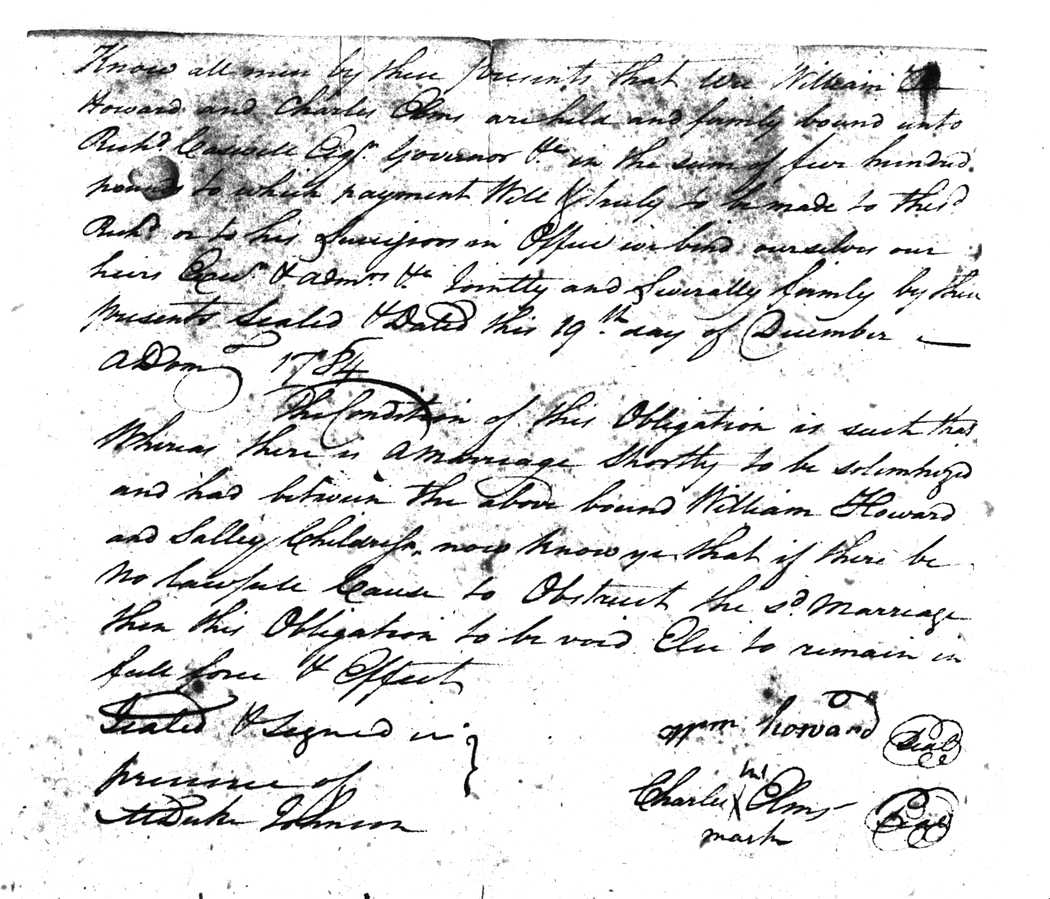 Know all men by these presents that we William
Howard and Charles Elms are held and firmly bound unto
Richd. Caswell Esqr. Governor &c in the sum of five hundred
pounds to which payment Well & truly to be made to the sd
Richd or to his Successors in Office we bind ourselves our
heirs Exers & admrs &c Jointly and Severally firmly by these
presents Sealed & Dated this 19th day of December
ADom 1784
The Condition of this Obligation is such that
Whereas there is a marreage Shortly to be solemnized
and had between the above bound William Howard
and Salley Childress, now know ye that if there be
no lawfull Cause to Obstruct the sd. Marreage
then this Obligation to be void Else to remain in
full force & Effect
Sealed & Signed in
presence of
Duke Johnson
Wm howard Seal
his
Charles X Elms Seal
mark